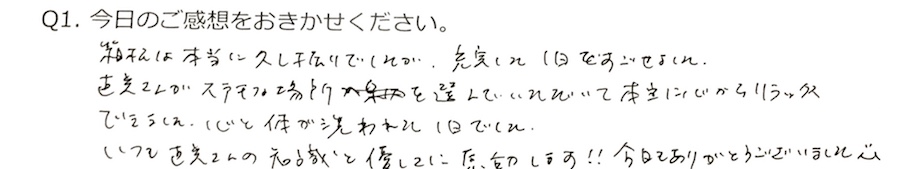 Q1. 今日のご感想をおきかせください。
箱根は本当に久し振りでしたが、充実した1日をすごせました。
直美さんがステキな場所を選んでいただいて本当に心からリラックス
できました。心と体が洗われた1日でした。
いつも直美さんの知識と優しさに感動します!!今日もありがとうございました